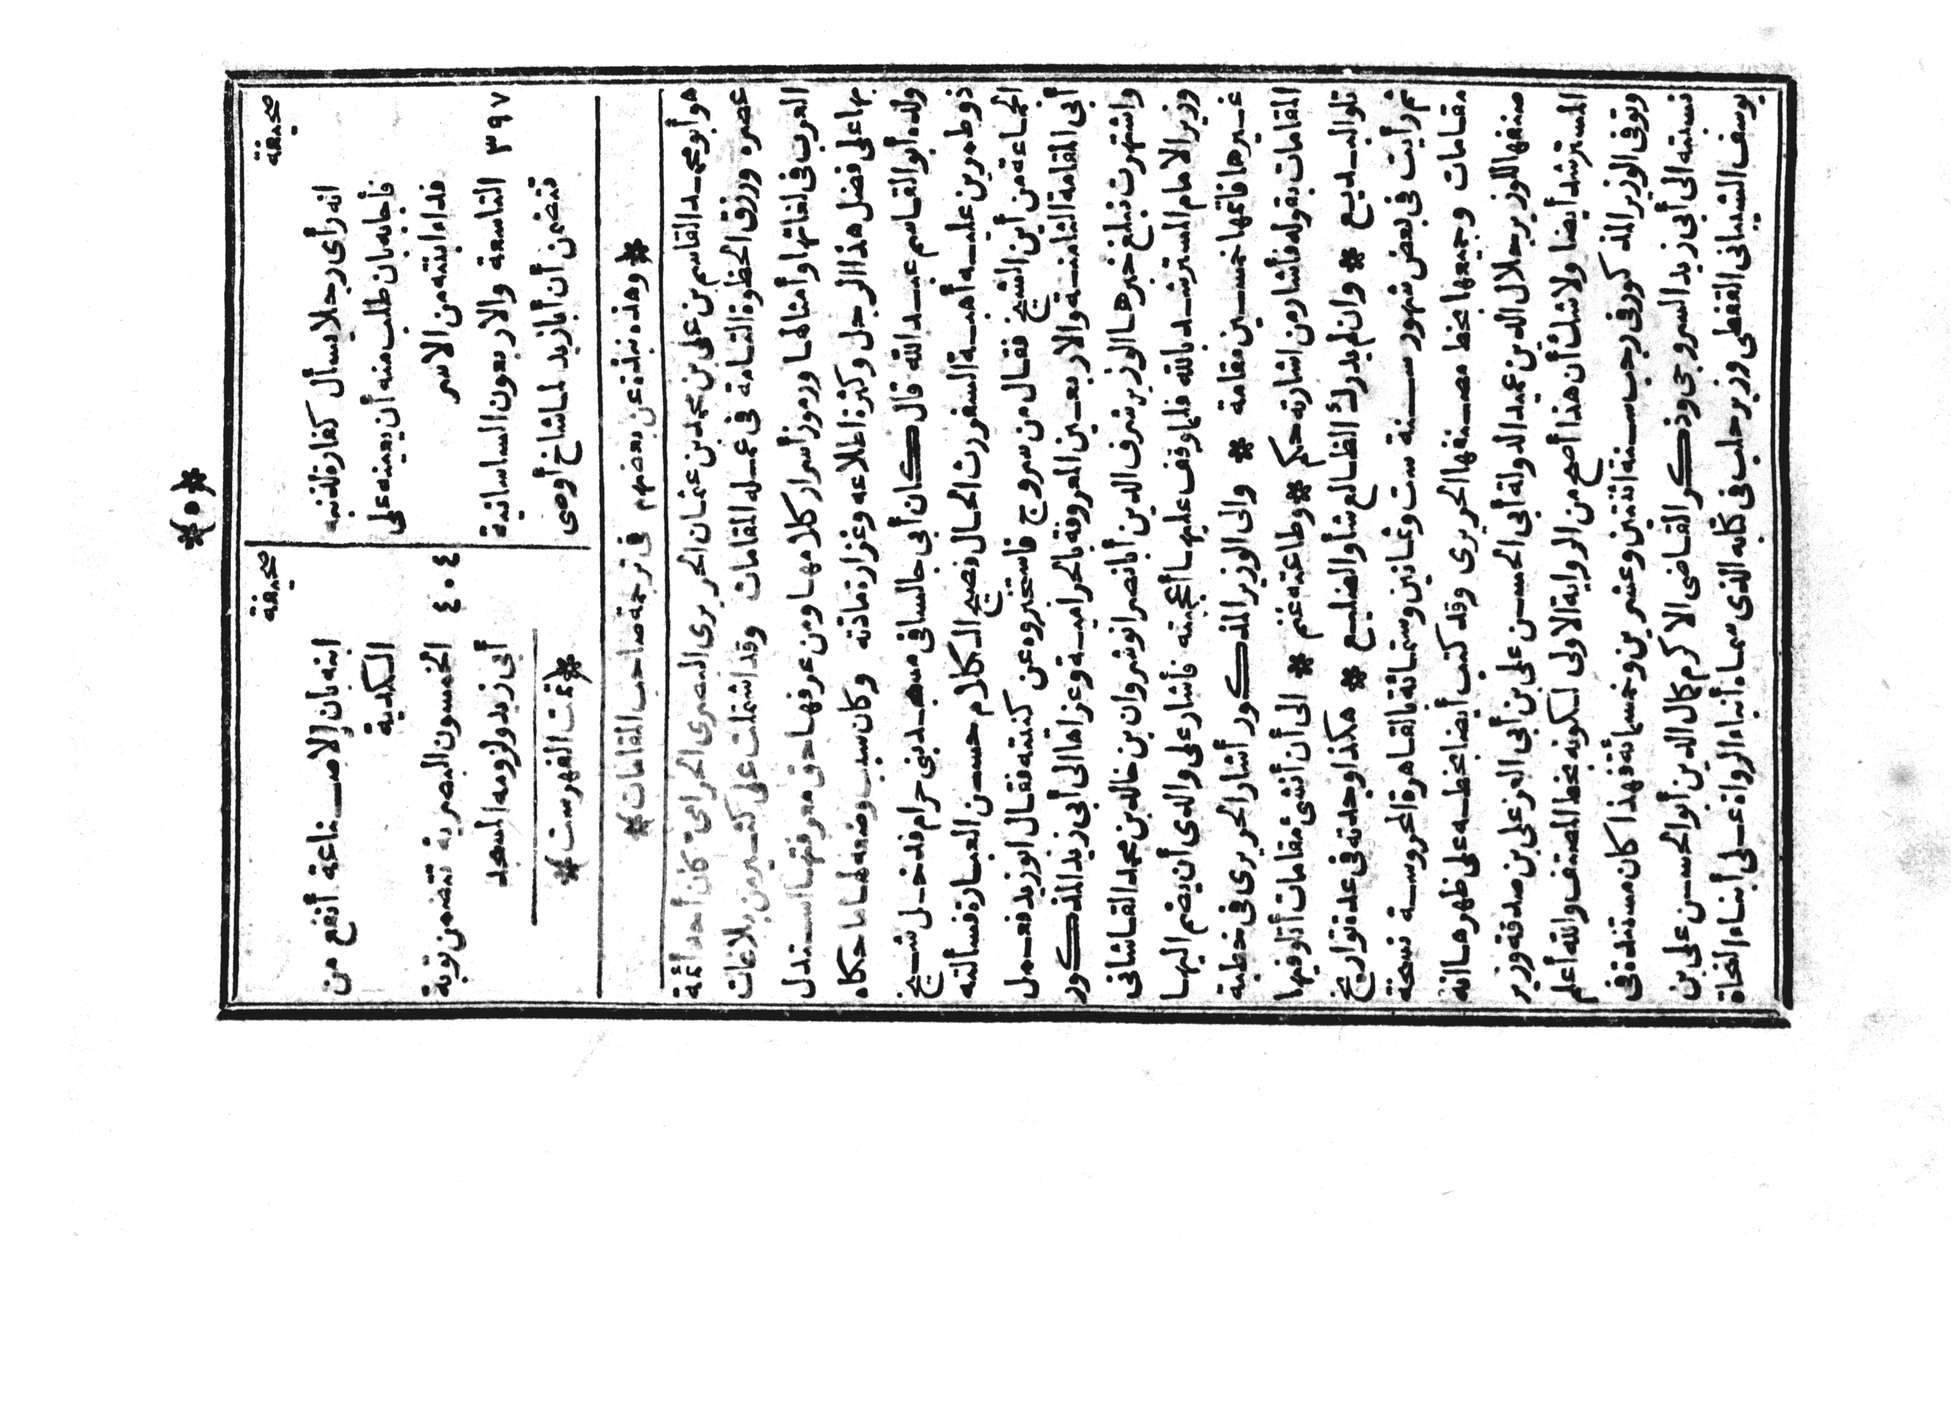 *(٥)*
صحيفة
انه رأى رجلا يسأل كفارة لذنبه
فأجابه بان طلب منه أن يعينه على
فداء ابنته من الاسر
٣٩٧ التاسعة والاربعون الساسانية
تتضمن أن أبا زيد لما شاخ أوصى
صحيفة
ابنه بان لا صناعة أنفع من
الكدية
٤٠٤ الخمسون البصرية تتضمن توبة
أبى زيد ولزومه المسجد
*(تمت الفهرست)*
*(وهذه نبذة عن بعضهم فى ترجمة صاحب المقامات)*
هو أبو محمد القاسم بن على بن محمد بن عثمان الحريرى البصرى الحرامى كان أحد أئمة
عصره ورزق الحظوة التامة فى عمله المقامات وقد اشتملت على كثير من بلاغات
العرب فى لغاتها وأمثالها ورموز أسرار كلامها ومن عرفها حق معرفتها استدل
بها على فضل هذا الرجل وكثرة اطلاعه وغزارة مادته وكان سبب وضعه لها ما حكاه
ولده أبو القاسم عبد الله قال كان أبى جالسا فى مسجد بنى حرام فدخل شيخ
ذو طمرين عليه أهبة السفر رث الحال فصيح الكلام حسن العبارة فسألته
الجماعة من أين الشيخ فقال من سروج فاستخبروه عن كنيته فقال ابو زيد فعمل
أبى المقامة الثامنة والاربعين المعروفة بالحرامية وعزاها الى أبى زيد المذكور
واشتهرت فبلغ خبرها الوزير شرف الدين أبا نصر انوشروان بن خالد بن محمد القاشانى
وزير الامام المسترشد بالله فلما وقف عليها أعجبته فأشار على والدى أن يضم اليها
غيرها فاتمها خمسين مقامة * والى الوزير المذكور أشار الحريرى فى خطبة
المقامات بقوله فأشار من اشارته حكم * وطاعته غنم * الى أن أنشئ مقامات أتلو فيها
تلو البديع * وان لم يدرك الظالع شأو الضليع * هكذا وجدته فى عدة تواريخ
ثم رأيت فى بعض شهور سنة ست وثمانين وستمائة بالقاهرة المحروسة نسخة
مقامات وجميعها بخط مصنفها الحريرى وقد كتب أيضا بخطه على ظهرها انه
صنفها للوزير جلال الدين عميد الدولة أبى الحسن على بن أبى العز على بن صدقة وزير
المسترشد أيضا ولا شك أن هذا أصح من الرواية الاولى لكونه بخط المصنف والله أعلم
وتوفى الوزير المذكور فى رجب سنة اثنتين وعشرين وخمسمائة فهذا كان مستنده فى
نسبته الى أبى زيد السروجى وذكر القاضى الاكرم كمال الدين أبو الحسن على بن
يوسف الشيبانى القفطى وزير حلب فى كتابه الذى سماه أنباء الرواة على أبناء النحاة